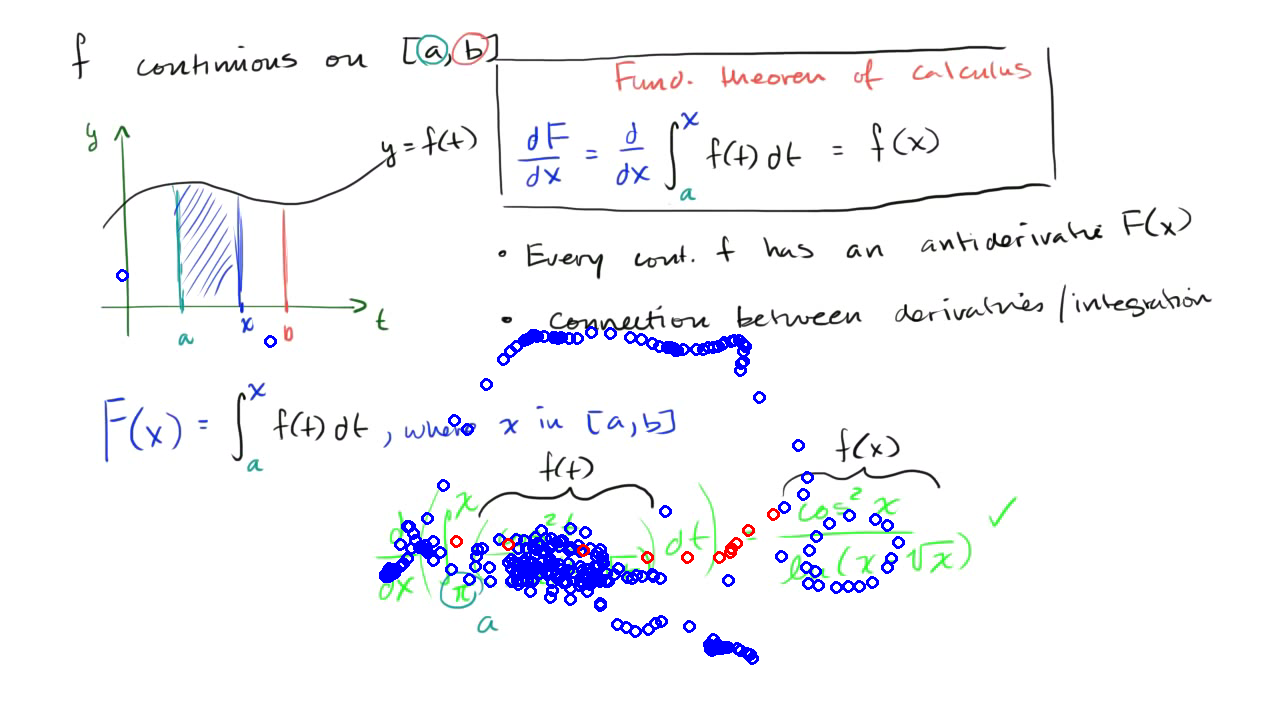 f continuous on [a,b]
Fund. theorem of calculus
dF/dx = d/dx ∫_a^x f(t) dt = f(x)
y
y = f(t)
a x b t
• Every cont. f has an antiderivative F(x)
• connection between derivatives/integration
F(x) = ∫_a^x f(t) dt, where x in [a,b]
f(t) f(x)
d/dx ( ∫_π^x ( dt ) = cos² x / ln(x √x) ✓
a